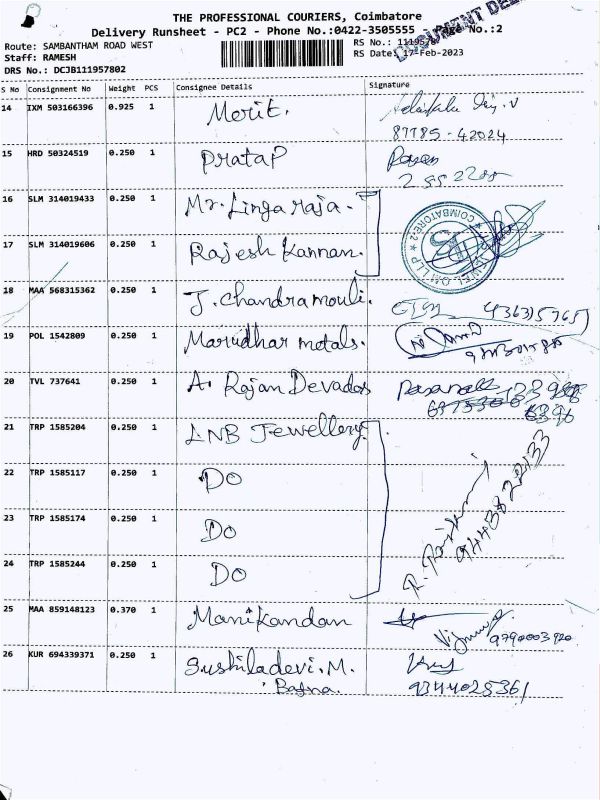 THE PROFESSIONAL COURIERS, Coimbatore
Delivery Runsheet - PC2 - Phone No.:0422-3505555 Page No.:2
Route: SAMBANTHAM ROAD WEST
Staff: RAMESH
DRS No.: DCJB111957802
RS No.:
RS Date: 17-Feb-2023
DOCUMENT
S No Consignment No Weight PCS Consignee Details Signature
14 IXM 503166396 0.925 1 Merit.
87785-42024
15 HRD 50324519 0.250 1 Pratap
16 SLM 314019433 0.250 1 Mr. Linga raja.
17 SLM 314019606 0.250 1 Rajesh Kannan.
COIMBATORE-2
18 MAA 568315362 0.250 1 J. Chandramouli.
19 POL 1542809 0.250 1 Marudhar metals.
20 TVL 737641 0.250 1 A. Rajan Devados
6396
21 TRP 1585204 0.250 1 LNB Jewellery
22 TRP 1585117 0.250 1 DO
23 TRP 1585174 0.250 1 DO
24 TRP 1585244 0.250 1 DO
25 MAA 859148123 0.370 1 Manikandan
26 KUR 694339371 0.250 1 Sushiladevi. M.
Bafna.
9344025361